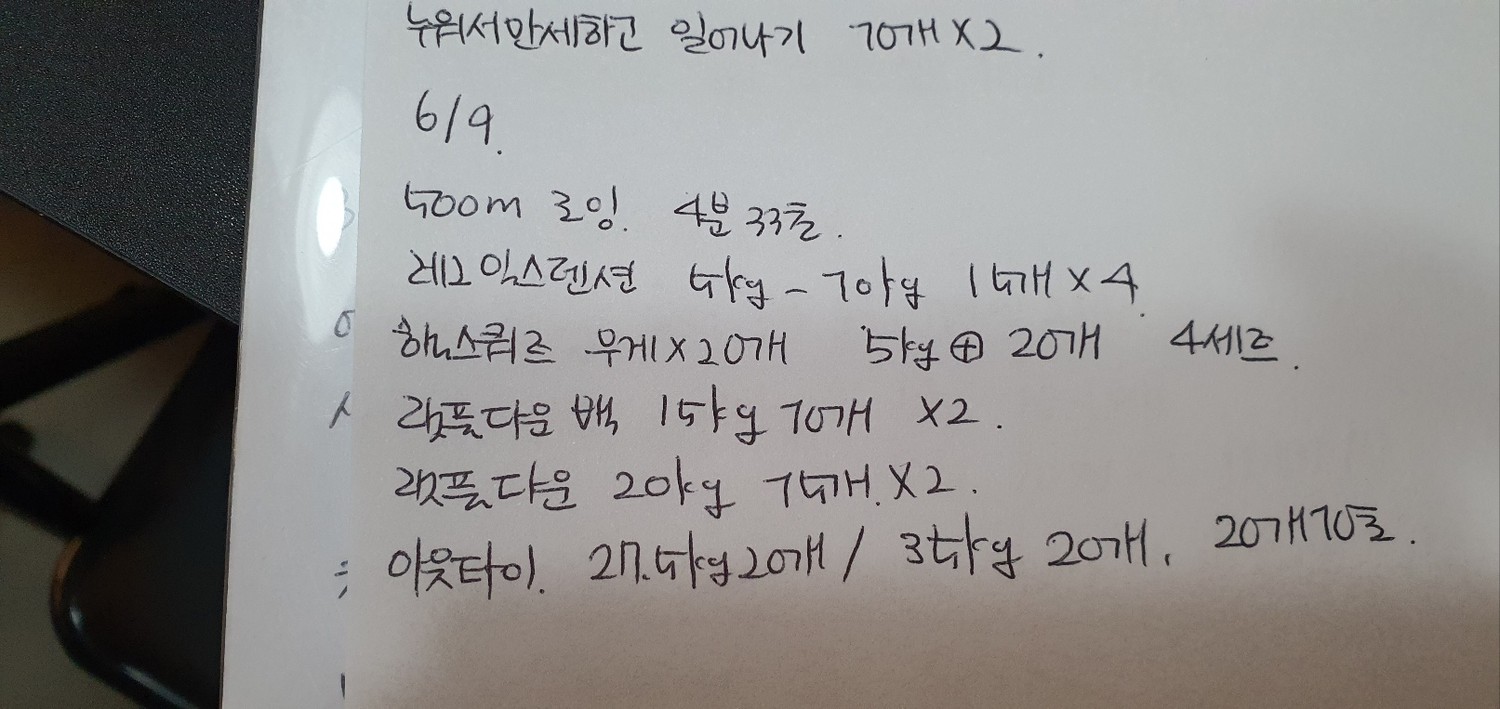 누워서만세하고 일어나기 10개 X 2.
6/9.
500m 로잉. 4분 33초.
레그익스텐션 5kg - 10kg 15개 x 4.
핵스쿼트 무게 x 20개 5kg ⊕ 20개 4세트.
랫플다운 백 15kg 10개 X2.
랫플다운 20kg 15개. X2.
아웃타이. 27.5kg 20개 / 35kg 20개. 20개10초.